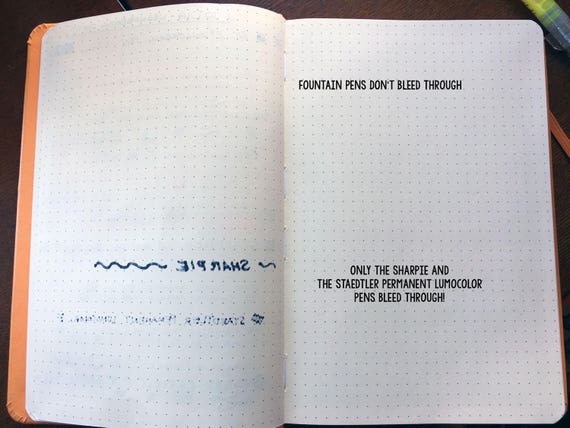 FOUNTAIN PENS DON'T BLEED THROUGH
SHARPIE
STAEDTLER PERMANENT LUMOCOLOR
ONLY THE SHARPIE AND
THE STAEDTLER PERMANENT LUMOCOLOR
PENS BLEED THROUGH!